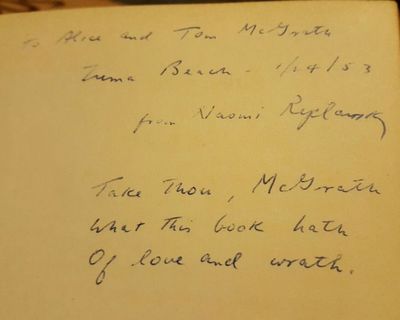 to Alice and Tom McGrath
Zuma Beach - 1/24/53
from Naomi Replansky
Take Thou, McGrath
What This book hath
Of love and wrath.